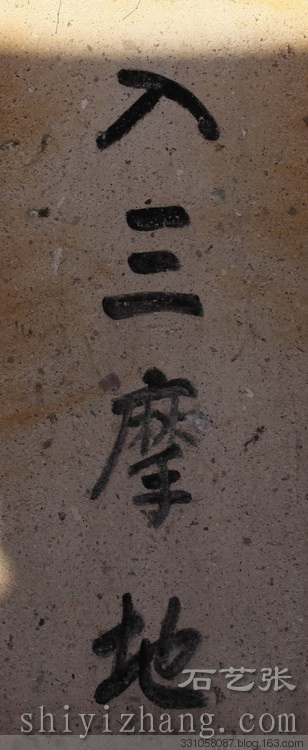 入三摩地
石艺张
shiyizhang.com
331058087.blog.163.com